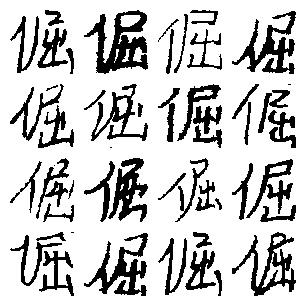 倔倔倔倔
倔倔倔倔
倔倔倔倔
倔倔倔倔